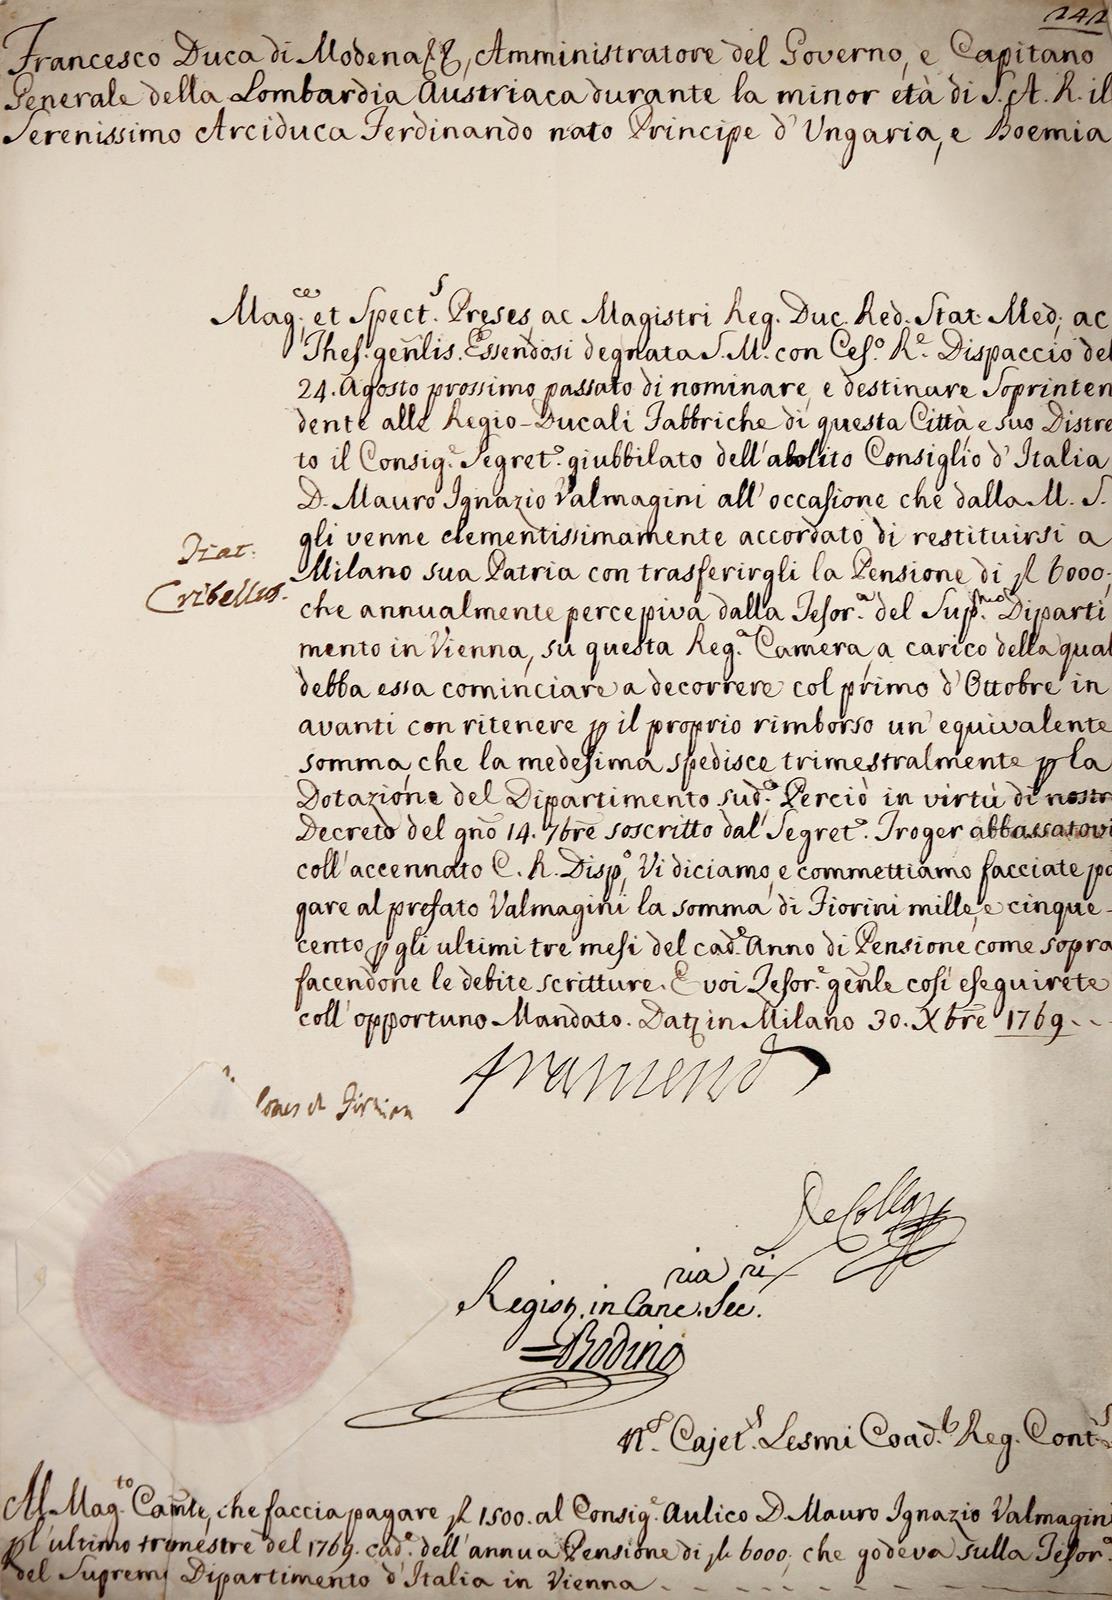 242
Francesco Duca di Modena &&, Amministratore del Governo, e Capitano
Generale della Lombardia Austriaca durante la minor età di S. A. R. il
Serenissimo Arciduca Ferdinando nato Principe d'Ungaria, e Boemia
Mag.ce et Spect.s Preses, ac Magistri Reg. Duc. Red. Stat. Med. ac
Thes. gen̄lis. Essendosi degnata S. M. con Ces.o R.e Dispaccio del
24. Agosto prossimo passato di nominare, e destinare Soprinten
dente alle Regio-Ducali Fabbriche di questa Città e suo Distre
to il Consig.e Segret.o giubbilato dell'abolito Consiglio d'Italia
D. Mauro Ignazio Valmagini all'occasione che dalla M. S.
gli venne clementissimamente accordato di restituirsi a
Milano sua Patria con trasferirgli la Pensione di fl 6000,
che annualmente percepiva dalla Tesor.a del Sup.mo Diparti
mento in Vienna, su questa Reg.a Camera, a carico della qual
debba essa cominciare a decorrere col primo d'Ottobre in
avanti con ritenere p il proprio rimborso un'equivalente
somma, che la medesima spedisce trimestralmente p la
Dotazione del Dipartimento sud.o Perciò in virtù di nostr
Decreto del gn̄o 14. 7bre soscritto dal Segret.o Troger abbassatovi
coll'accennato C. R. Disp.o, Vi diciamo, e commettiamo facciate pa
gare al prefato Valmagini la somma di Fiorini mille, e cinque-
cento p gli ultimi tre mesi del cad.e Anno di Pensione come sopra
facendone le debite scritture. E voi Tesor.e gen̄le così eseguirete
coll'opportuno Mandato. Dat in Milano 30. Xbre 1769
Stat.
Cribellus.
Comes de Firmian
De Colla
Regist. in Canc.ria Sec.ri
Bodino
N.s Cajet.s Lesmi Coad. Reg. Cont.s
Al Mag.to Cam̄le, che faccia pagare fl 1500. al Consig.e Aulico D. Mauro Ignazio Valmagin
p l'ultimo trimestre del 1769. cad.e dell'annua Pensione di fl 6000, che godeva sulla Tesor.a
del Supremo Dipartimento d'Italia in Vienna